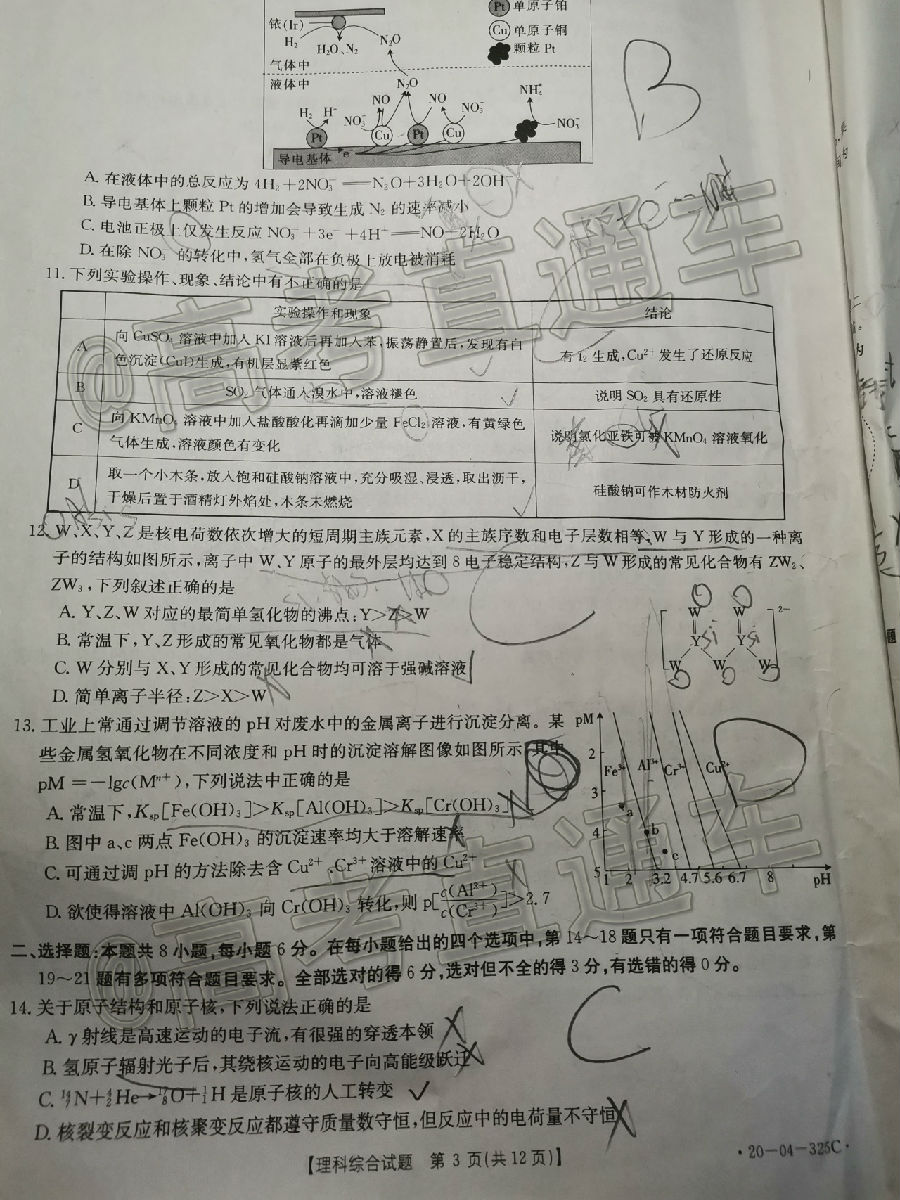 Pt 单原子铂
铱(Ir)
Cu 单原子铜
H₂ H₂O、N₂ N₂O
颗粒 Pt
气体中
液体中
N₂O NH₄⁺
NO NO NO₃⁻
H₂ H⁺ NO₃⁻ NO₃⁻
Pt Cu Pt Cu
导电基体 e⁻
B
A. 在液体中的总反应为 4H₂+2NO₃⁻══N₂O+3H₂O+2OH⁻
B. 导电基体上颗粒 Pt 的增加会导致生成 N₂ 的速率减小
C. 电池正极上仅发生反应 NO₃⁻+3e⁻+4H⁺══NO+2H₂O
D. 在除 NO₃⁻ 的转化中,氢气全部在负极上放电被消耗
11. 下列实验操作、现象、结论中有不正确的是
实验操作和现象 结论
A 向 CuSO₄ 溶液中加入 KI 溶液后再加入苯,振荡静置后,发现有白
色沉淀(CuI)生成,有机层显紫红色 有 I₂ 生成,Cu²⁺ 发生了还原反应
B SO₂ 气体通入溴水中,溶液褪色 说明 SO₂ 具有还原性
C 向 KMnO₄ 溶液中加入盐酸酸化再滴加少量 FeCl₂ 溶液,有黄绿色
气体生成,溶液颜色有变化 说明氯化亚铁可被 KMnO₄ 溶液氧化
D 取一个小木条,放入饱和硅酸钠溶液中,充分吸湿、浸透,取出沥干,
干燥后置于酒精灯外焰处,木条未燃烧 硅酸钠可作木材防火剂
12. W、X、Y、Z 是核电荷数依次增大的短周期主族元素,X 的主族序数和电子层数相等,W 与 Y 形成的一种离
子的结构如图所示,离子中 W、Y 原子的最外层均达到 8 电子稳定结构,Z 与 W 形成的常见化合物有 ZW₂、
ZW₃,下列叙述正确的是
C
A. Y、Z、W 对应的最简单氢化物的沸点:Y>Z>W
B. 常温下,Y、Z 形成的常见氧化物都是气体
C. W 分别与 X、Y 形成的常见化合物均可溶于强碱溶液
D. 简单离子半径:Z>X>W
W W 2−
Y Y
W W W
13. 工业上常通过调节溶液的 pH 对废水中的金属离子进行沉淀分离。某
些金属氢氧化物在不同浓度和 pH 时的沉淀溶解图像如图所示,其中
pM=−lgc(Mⁿ⁺),下列说法中正确的是
A. 常温下,Ksp[Fe(OH)₃]>Ksp[Al(OH)₃]>Ksp[Cr(OH)₃]
B. 图中 a、c 两点 Fe(OH)₃ 的沉淀速率均大于溶解速率
C. 可通过调 pH 的方法除去含 Cu²⁺、Cr³⁺ 溶液中的 Cu²⁺
D. 欲使得溶液中 Al(OH)₃ 向 Cr(OH)₃ 转化,则 p[c(Al³⁺)/c(Cr³⁺)]>2.7
pM
2
Fe³⁺ Al³⁺ Cr³⁺ Cu²⁺
3
a
4 b
c
5
1 2 3.2 4.7 5.6 6.7 8 pH
D
二、选择题:本题共 8 小题,每小题 6 分。在每小题给出的四个选项中,第 14~18 题只有一项符合题目要求,第
19~21 题有多项符合题目要求。全部选对的得 6 分,选对但不全的得 3 分,有选错的得 0 分。
14. 关于原子结构和原子核,下列说法正确的是
A. γ 射线是高速运动的电子流,有很强的穿透本领
B. 氢原子辐射光子后,其绕核运动的电子向高能级跃迁
C. ¹⁴₇N+⁴₂He→¹⁷₈O+¹₁H 是原子核的人工转变
D. 核裂变反应和核聚变反应都遵守质量数守恒,但反应中的电荷量不守恒
C
【理科综合试题 第 3 页(共 12 页)】
·20—04—325C·
@高考直通车
@高考直通车